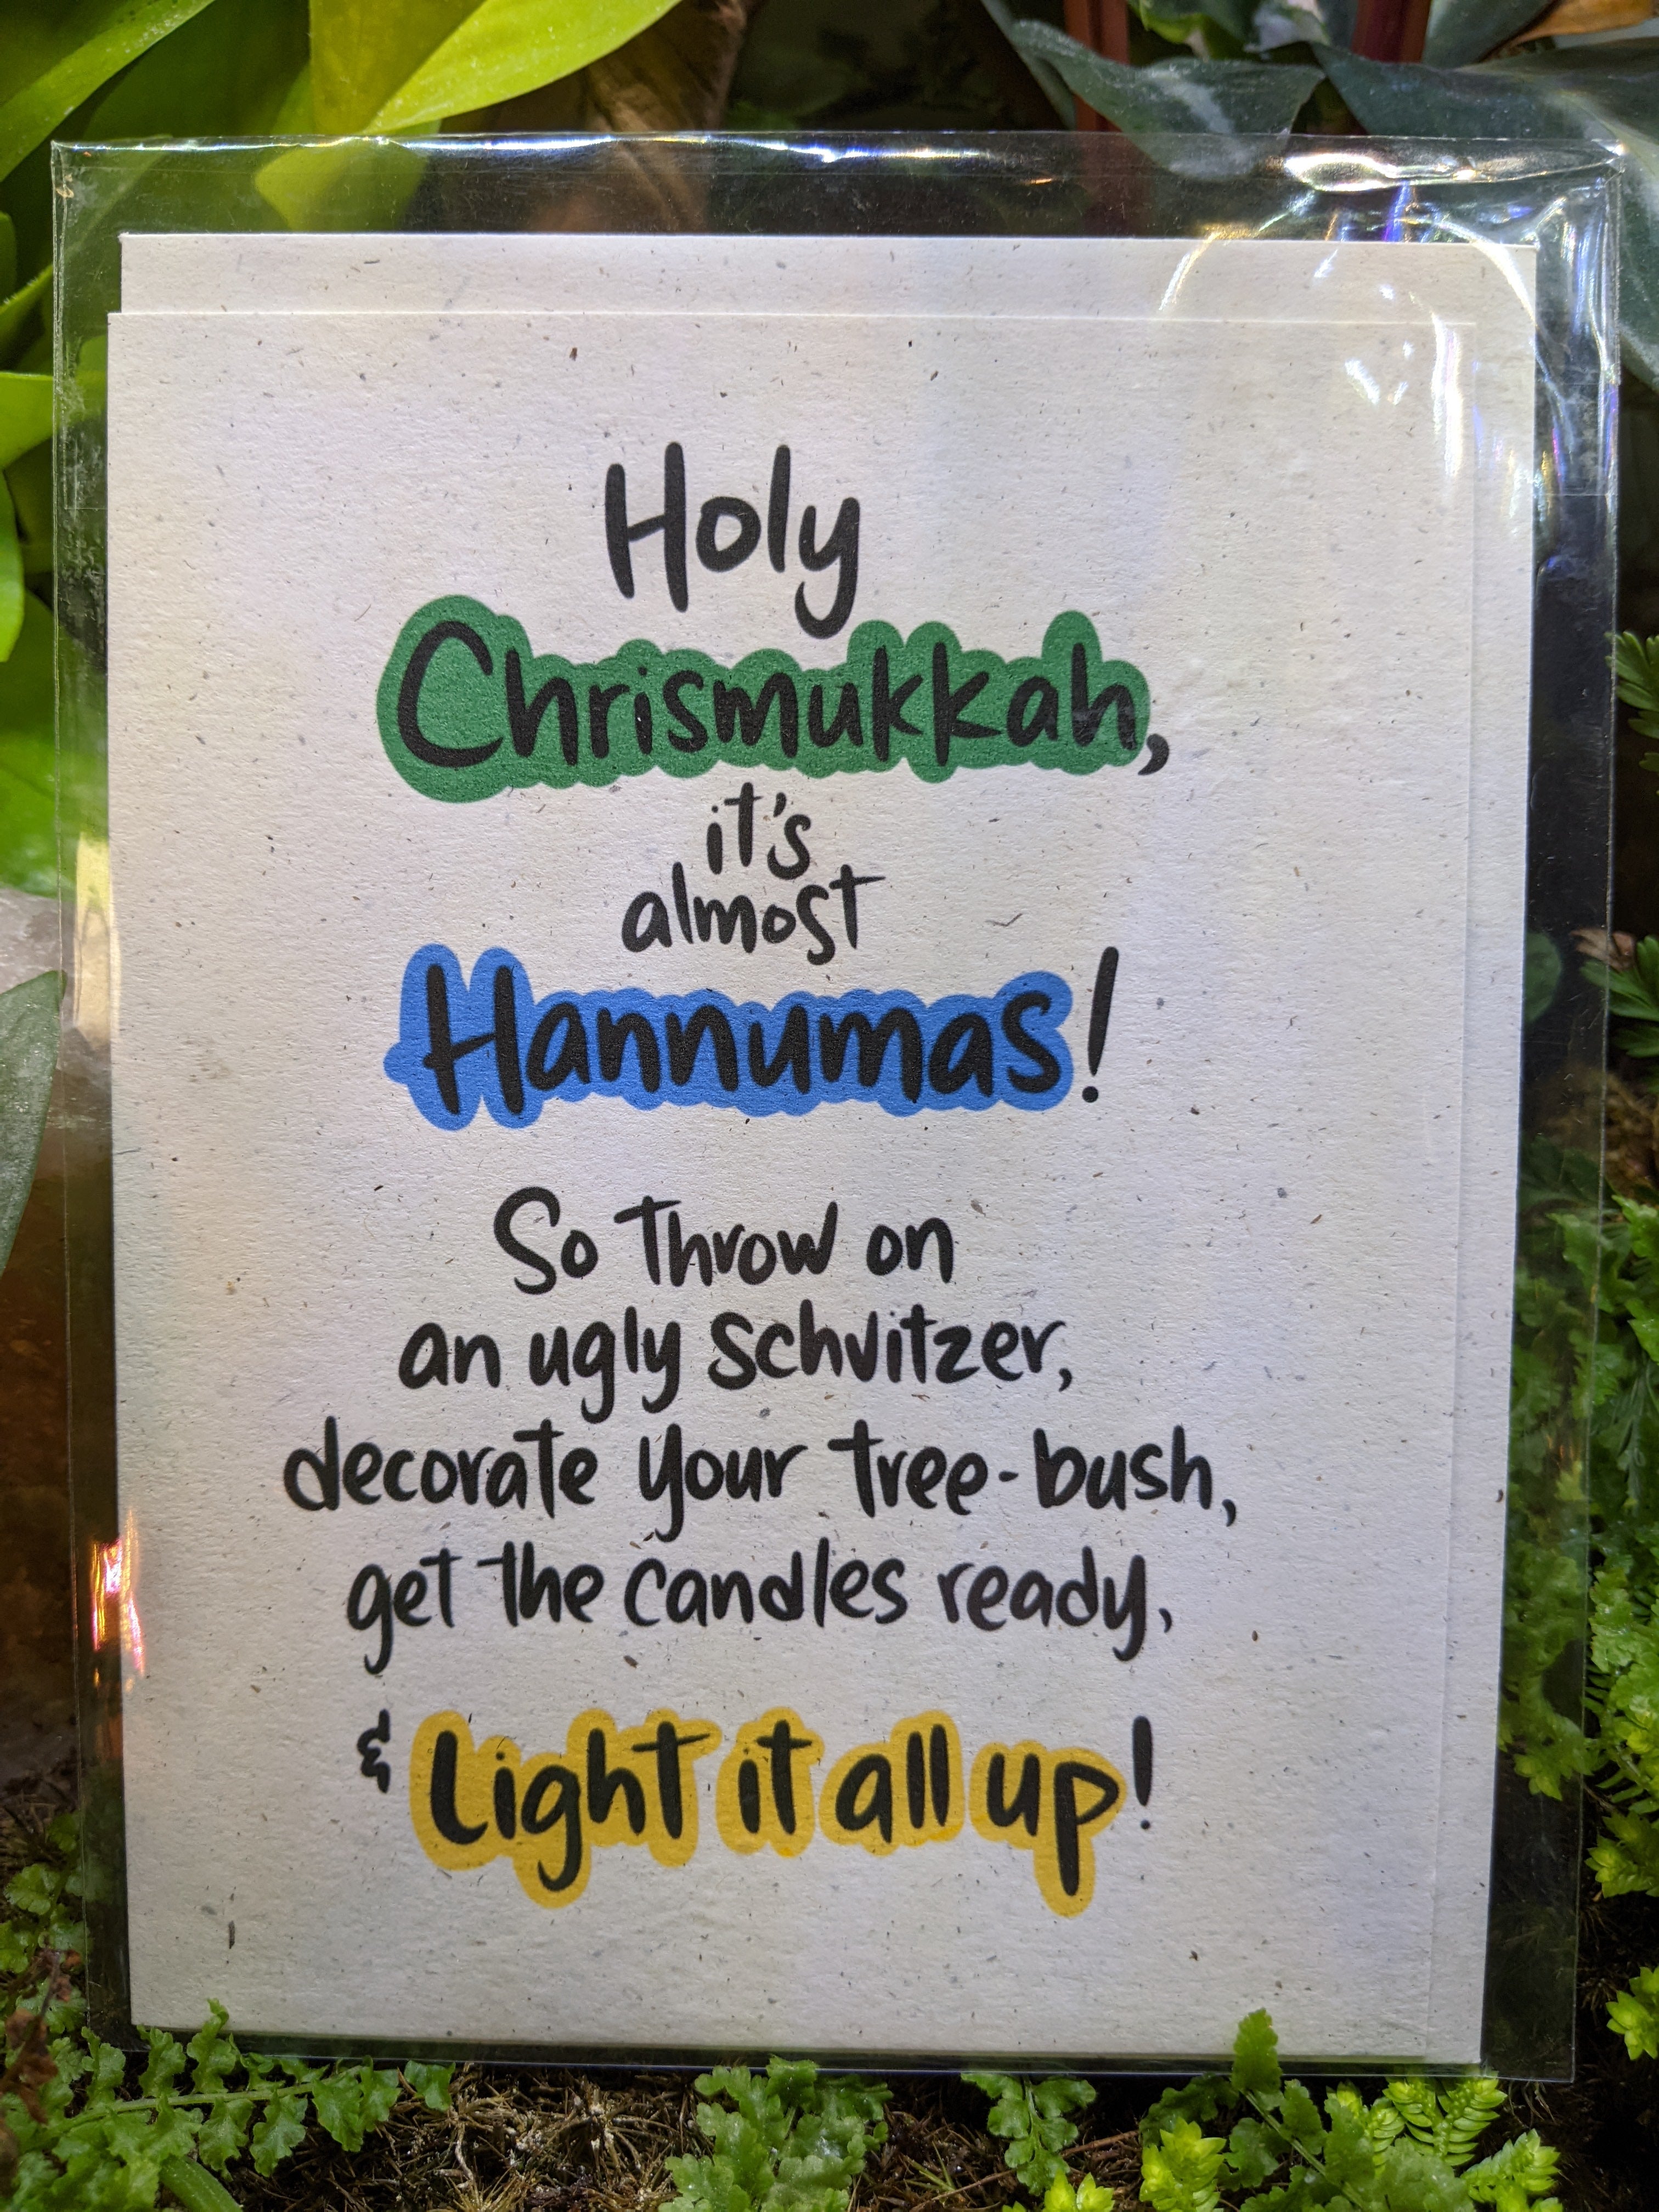 Holy
Chrismukkah,
it's
almost
Hannumas!
So throw on
an ugly schvitzer,
decorate your tree-bush,
get the candles ready,
& Light it all up!